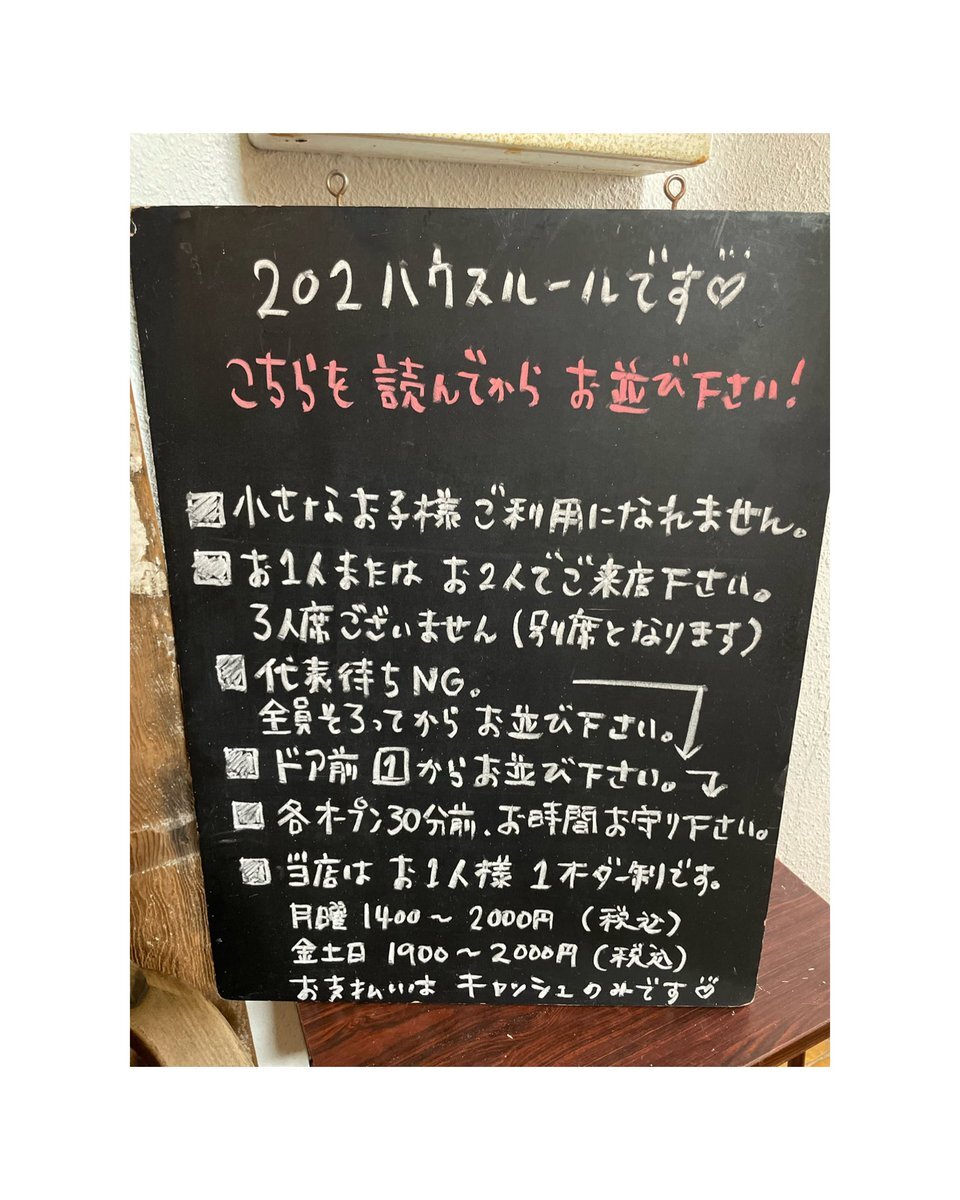 202ハウスルールです♡
こちらを読んでからお並び下さい!
■小さなお子様ご利用になれません。
■お1人またはお2人でご来店下さい。
3人席ございません(別席となります)
■代表待ちNG。
全員そろってからお並び下さい。
■ドア前1からお並び下さい。
■各オープン30分前、お時間お守り下さい。
■当店はお1人様1オーダー制です。
月曜1400〜2000円(税込)
金土日1900〜2000円(税込)
お支払いはキャッシュのみです♡